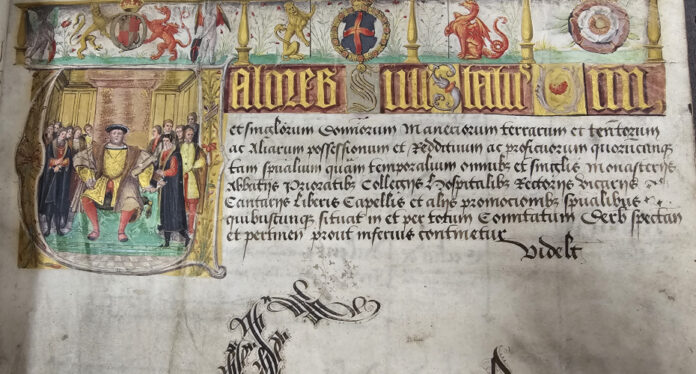 alores Siue
et singlorum Dominiorum Maneriorum terrarum et tentorum
ac Aliarum possessionum et Reddituum ac proficuorum quorumcunq
tam spualium quam temporalium omnibus et singlis Monasterijs
Abbatijs Prioratibz Collegijs Hospitalibz Rectorijs Vicarijs
Cantarijs Liberis Capellis et alijs promocionibus spualibus
quibuscunq situat in et per totum Comitatum Derb spectan
et pertinen prout inferius continetur
Videlt